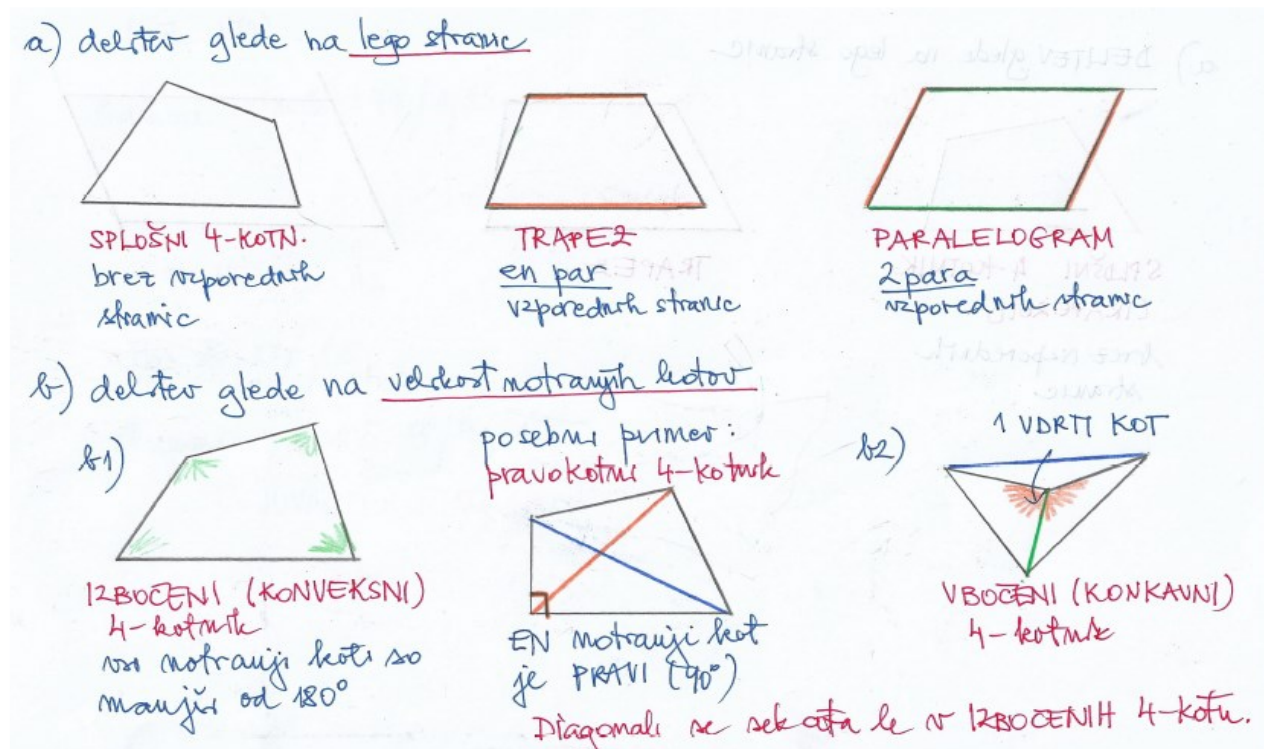 a) delitev glede na lego stranic
SPLOŠNI 4-KOTN.
brez vzporednih
stranic
TRAPEZ
en par
vzporednih stranic
PARALELOGRAM
2 para
vzporednih stranic
b) delitev glede na velikost notranjih kotov
b1)
IZBOČENI (KONVEKSNI)
4-kotnik
vsi notranji koti so
manjši od 180°
posebni primer:
pravokotni 4-kotnik
EN notranji kot
je PRAVI (90°)
b2)
1 VDRTI KOT
VBOČENI (KONKAVNI)
4-kotnik
Diagonali se sekata le v IZBOČENIH 4-kotn.